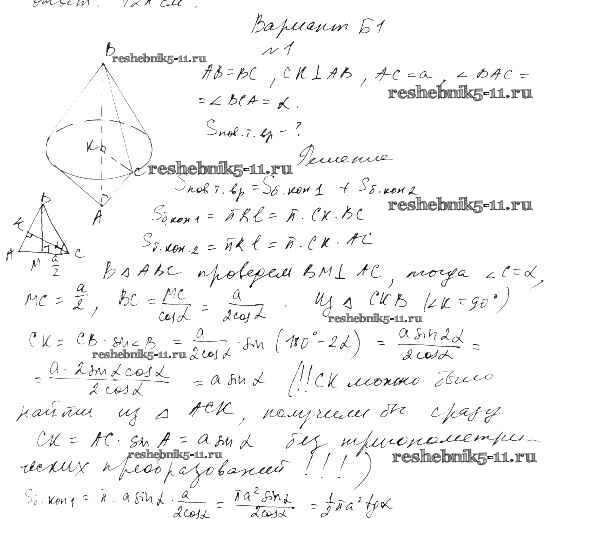 Ответ: 12π см.
Вариант Б1
№1
B
reshebnik5-11.ru
AB=BC, CK⊥AB, AC=a, ∠BAC=
reshebnik5-11.ru
=∠BCA=α.
Sпов.т.вр - ?
K
C
A
reshebnik5-11.ru
Решение
Sпов.т.вр=Sб.кон1 + Sб.кон2
reshebnik5-11.ru
Sб.кон1 = πRl = π·CK·BC
Sб.кон.2 = πRl = π·CK·AC
B
K
A
M
a/2
C
В △ABC проведем BM⊥AC, тогда ∠C=α,
MC = a/2, BC = MC/cosα = a/2cosα. Из △CKB (∠K=90°)
reshebnik5-11.ru
CK = CB·sin∠B = a/2cosα · sin(180°-2α) = a sin2α/2cosα =
reshebnik5-11.ru
= a·2sinαcosα/2cosα = a sinα (!!CK можно было
найти из △ACK, получили бы сразу
CK = AC·sinA = a sinα без тригонометри-
ческих преобразований!!!)
reshebnik5-11.ru
reshebnik5-11.ru
Sб.кон1 = π·a sinα · a/2cosα = πa² sinα/2cosα = 1/2 πa² tgα